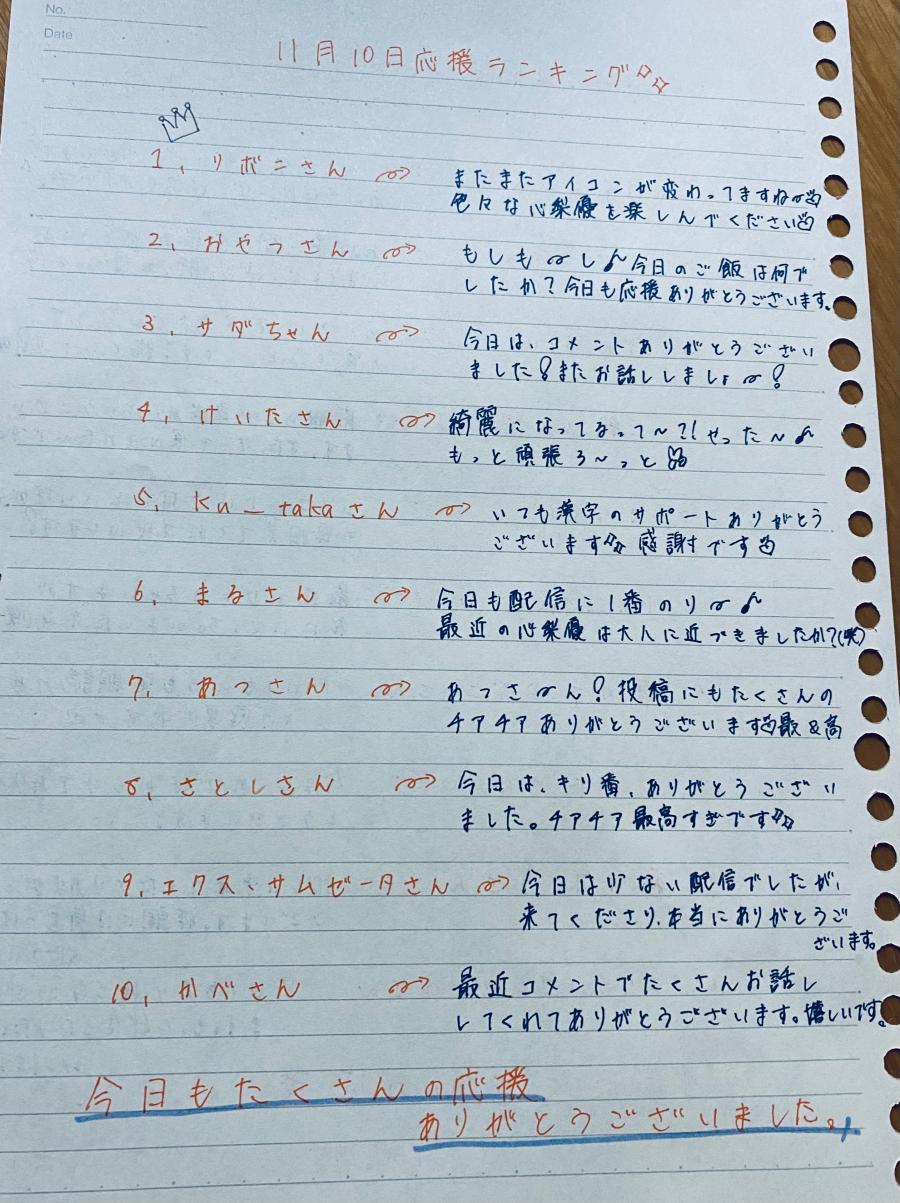 No.
Date
11月10日応援ランキング
1, リボニさん
またまたアイコンが変わってますね〜
色々な心梨優を楽しんでください
2, おやつさん
もしも〜し♪今日のご飯は何で
したか?今日も応援ありがとうございます。
3, サダちゃん
今日は、コメントありがとうござい
ました!またお話ししましょ〜!
4, けいたさん
綺麗になってるって〜?!やった〜♪
もっと頑張ろ〜っと
5, ku_takaさん
いつも漢字のサポートありがとう
ございます 感謝です
6, まるさん
今日も配信に1番のり〜♪
最近の心梨優は大人に近づきましたか?(笑)
7, あっさん
あっさ〜ん!投稿にもたくさんの
チアチアありがとうございます最&高
8, さとしさん
今日は、キリ番、ありがとうござい
ました。チアチア最高すぎです
9, エクス・サムゼータさん
今日は少ない配信でしたが、
来てくださり、本当にありがとうご
ざいます。
10, かべさん
最近コメントでたくさんお話し
してくれてありがとうございます。嬉しいです。
今日もたくさんの応援
ありがとうございました。